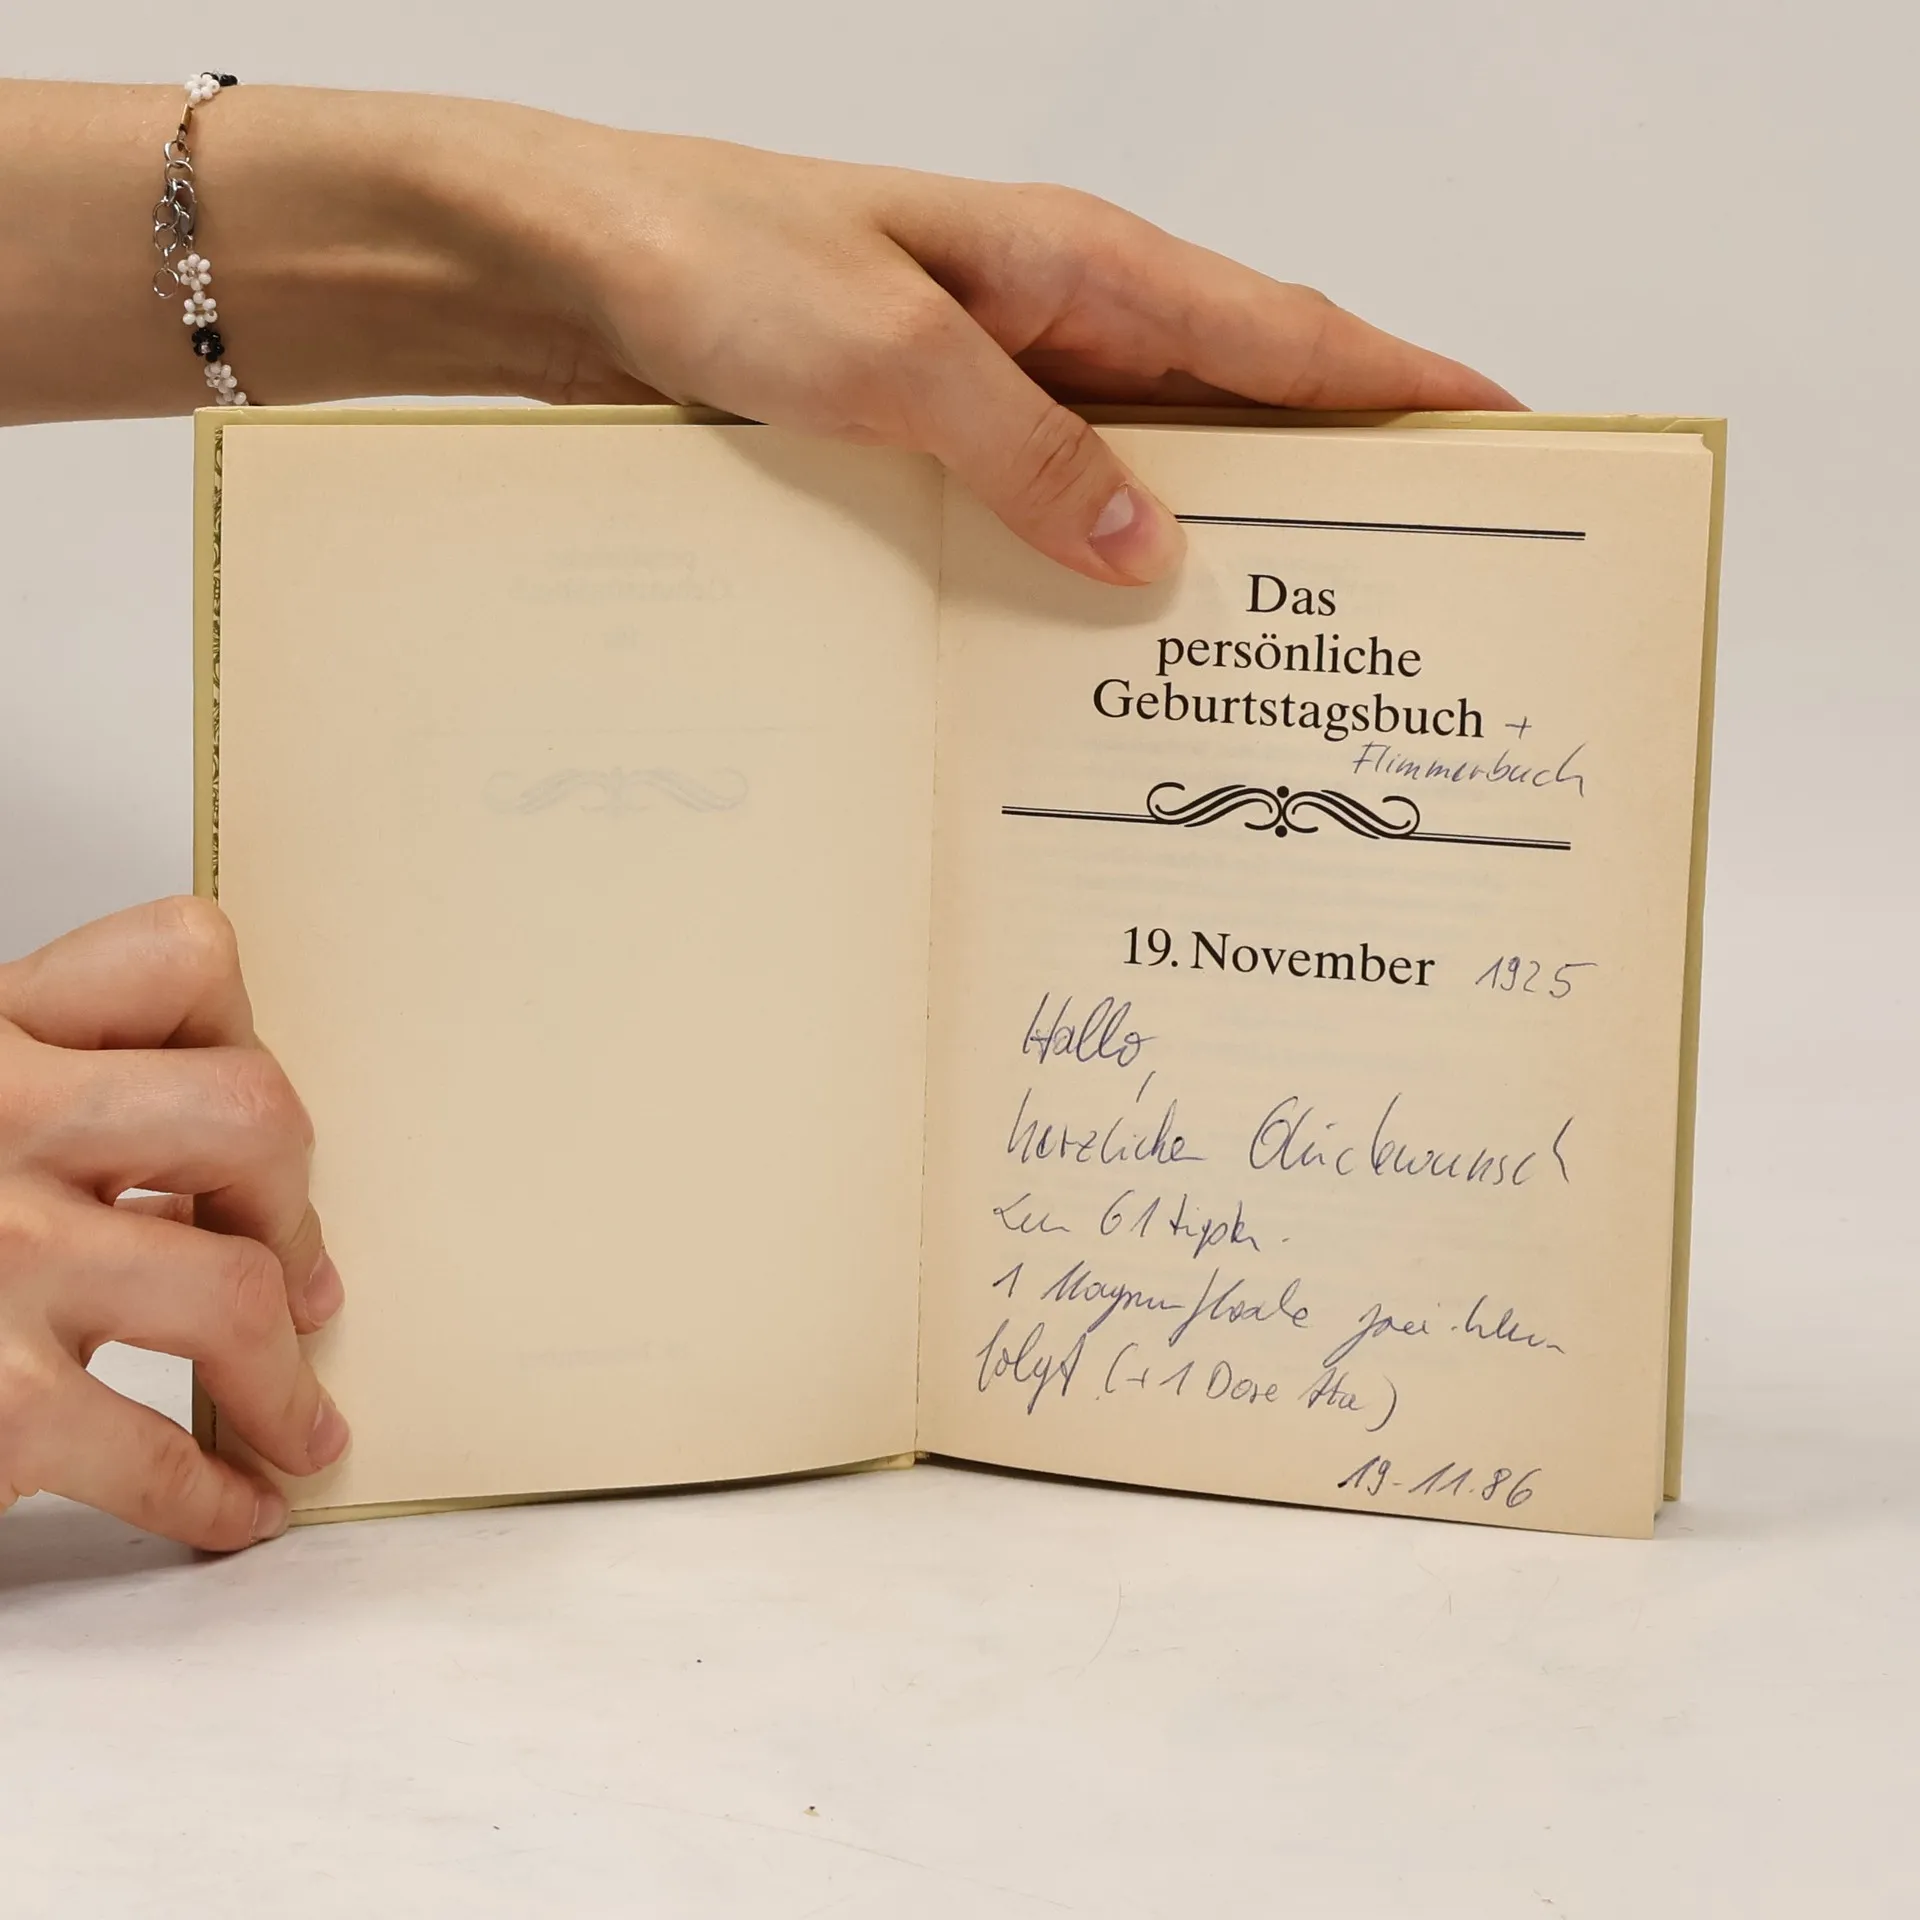 Das
persönliche
Geburtstagsbuch +
Flimmerbuch
19. November 1925
Hallo,
herzlichen Glückwunsch
zum 61 tigsten.
1 Magnumflasche
folgt (+ 1 Dose
19-11.86